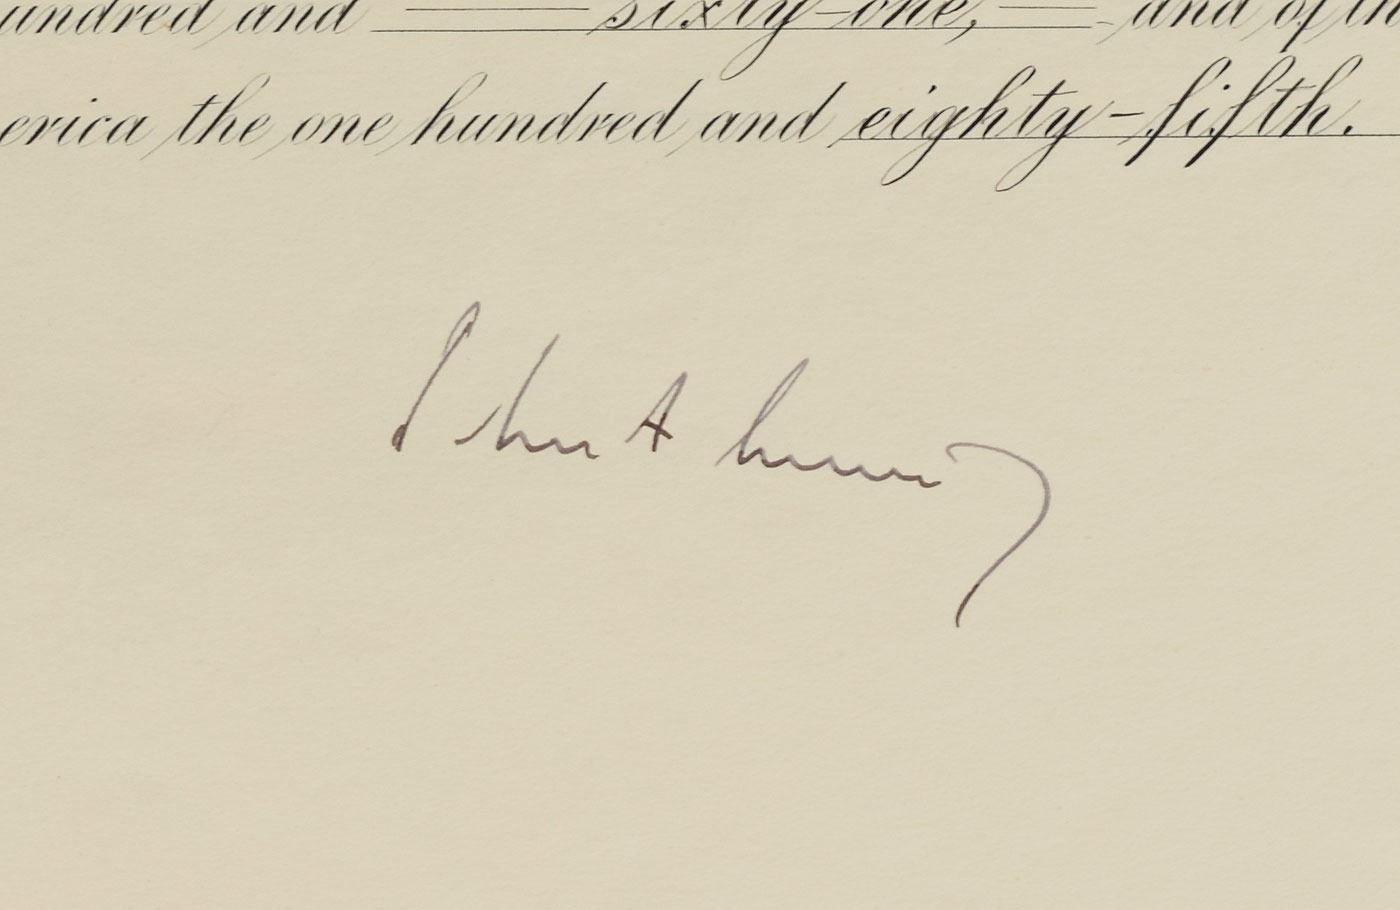 undred and sixty-one, and of th
erica the one hundred and eighty-fifth.